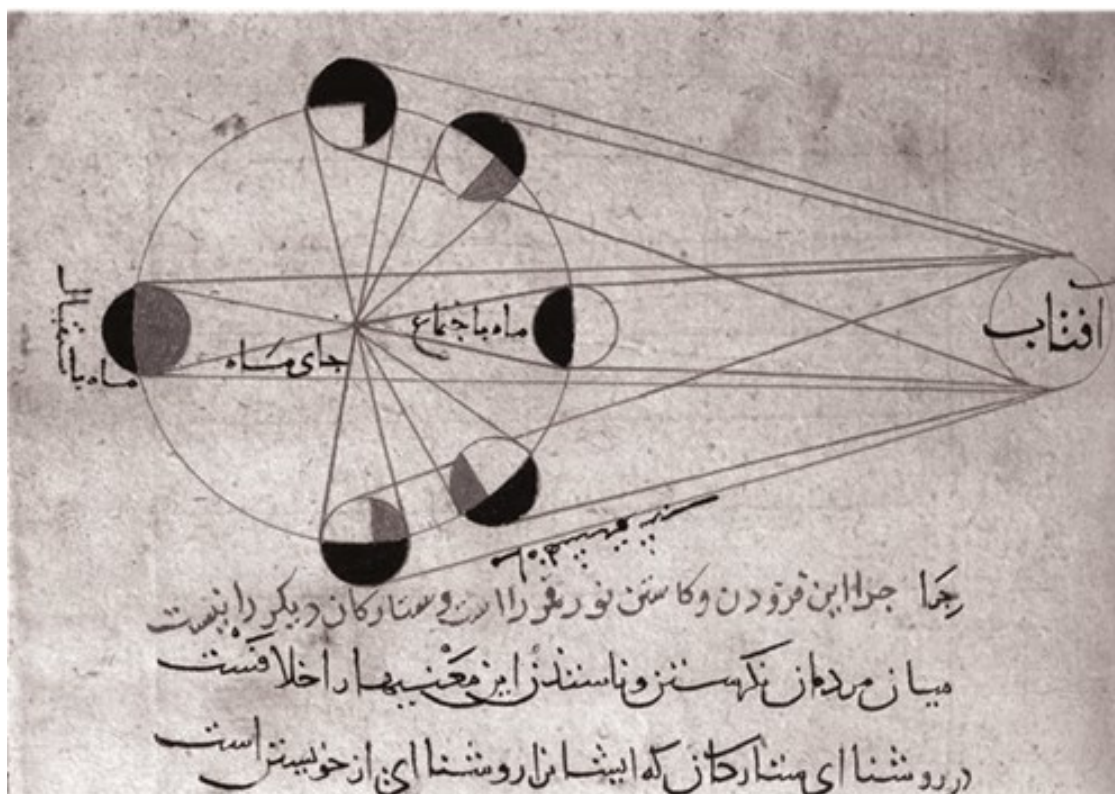 افتاب
ماه باجتماع
جای ماه
ماه باستقبال
چرا این فزودن و کاستن نور قمر را است و ستارکان دیکر را نیست
میان مردمان نکرستن این معنیها را اختلافست
در روشنا ای ستارکان که ایشانرا روشنا ای از خویشتن است